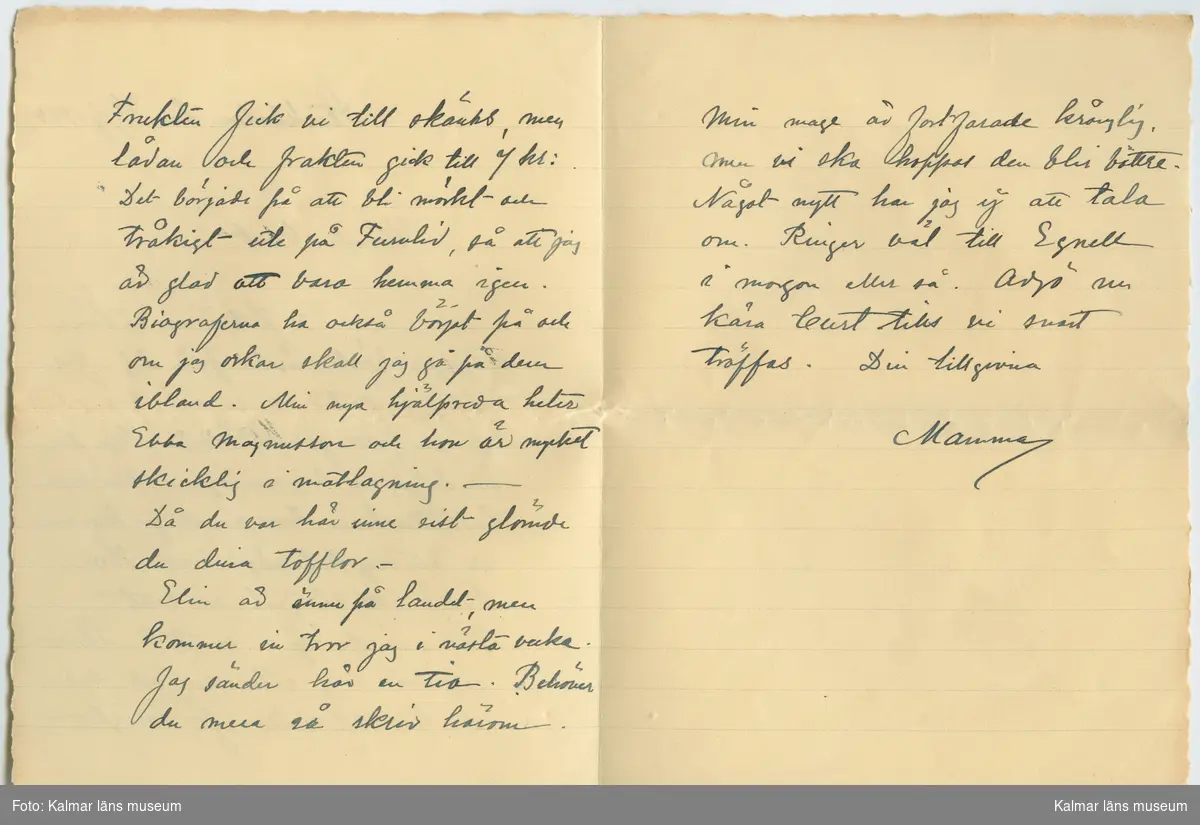 Frukten fick vi till skänks, men
lådan och frakten gick till 7 kr:
Det började på att bli mörkt och
tråkigt ute på Furulid, så att jag
är glad att vara hemma igen.
Biograferna ha också börjat på och
om jag orkar skall jag gå på dem
ibland. Min nya hjälpreda heter
Ebba Magnusson och hon är mycket
skicklig i matlagning. —
Då du var här inne sist glömde
du dina tofflor. –
Elin är ännu på landet, men
kommer in tror jag i nästa vecka.
Jag sänder här en tia. Behöver
du mera så skriv härom.
Min mage är fortfarade krånglig,
men vi ska hoppas den blir bättre.
Något nytt har jag ej att tala
om. Ringer väl till Egnell
i morgon eller så. Adjö nu
kära Curt tills vi snart
träffas. Din tillgivna
Mamma
Foto: Kalmar läns museum
Kalmar läns museum